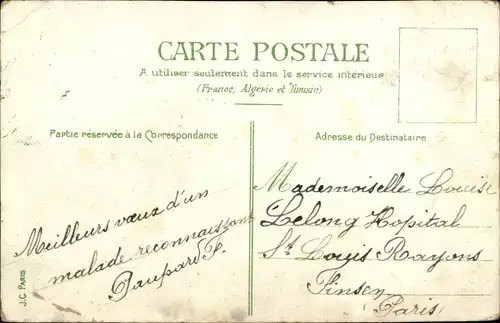 CARTE POSTALE
A utiliser seulement dans le service intérieur
(France, Algérie et Tunisie)
Partie réservée à la Correspondance
Adresse du Destinataire
Meilleurs vœux d'un
malade reconnaissant
Mademoiselle Louise
Lelong Hopital
St Louis Rayons
Finsen
Paris
J.C. PARIS